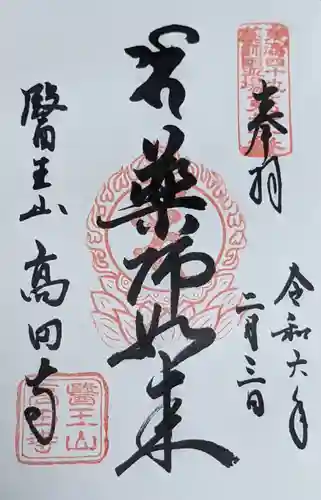 奉拝
令和六年
二月三日
薬師如来
醫王山
高田寺
醫王山
高田寺